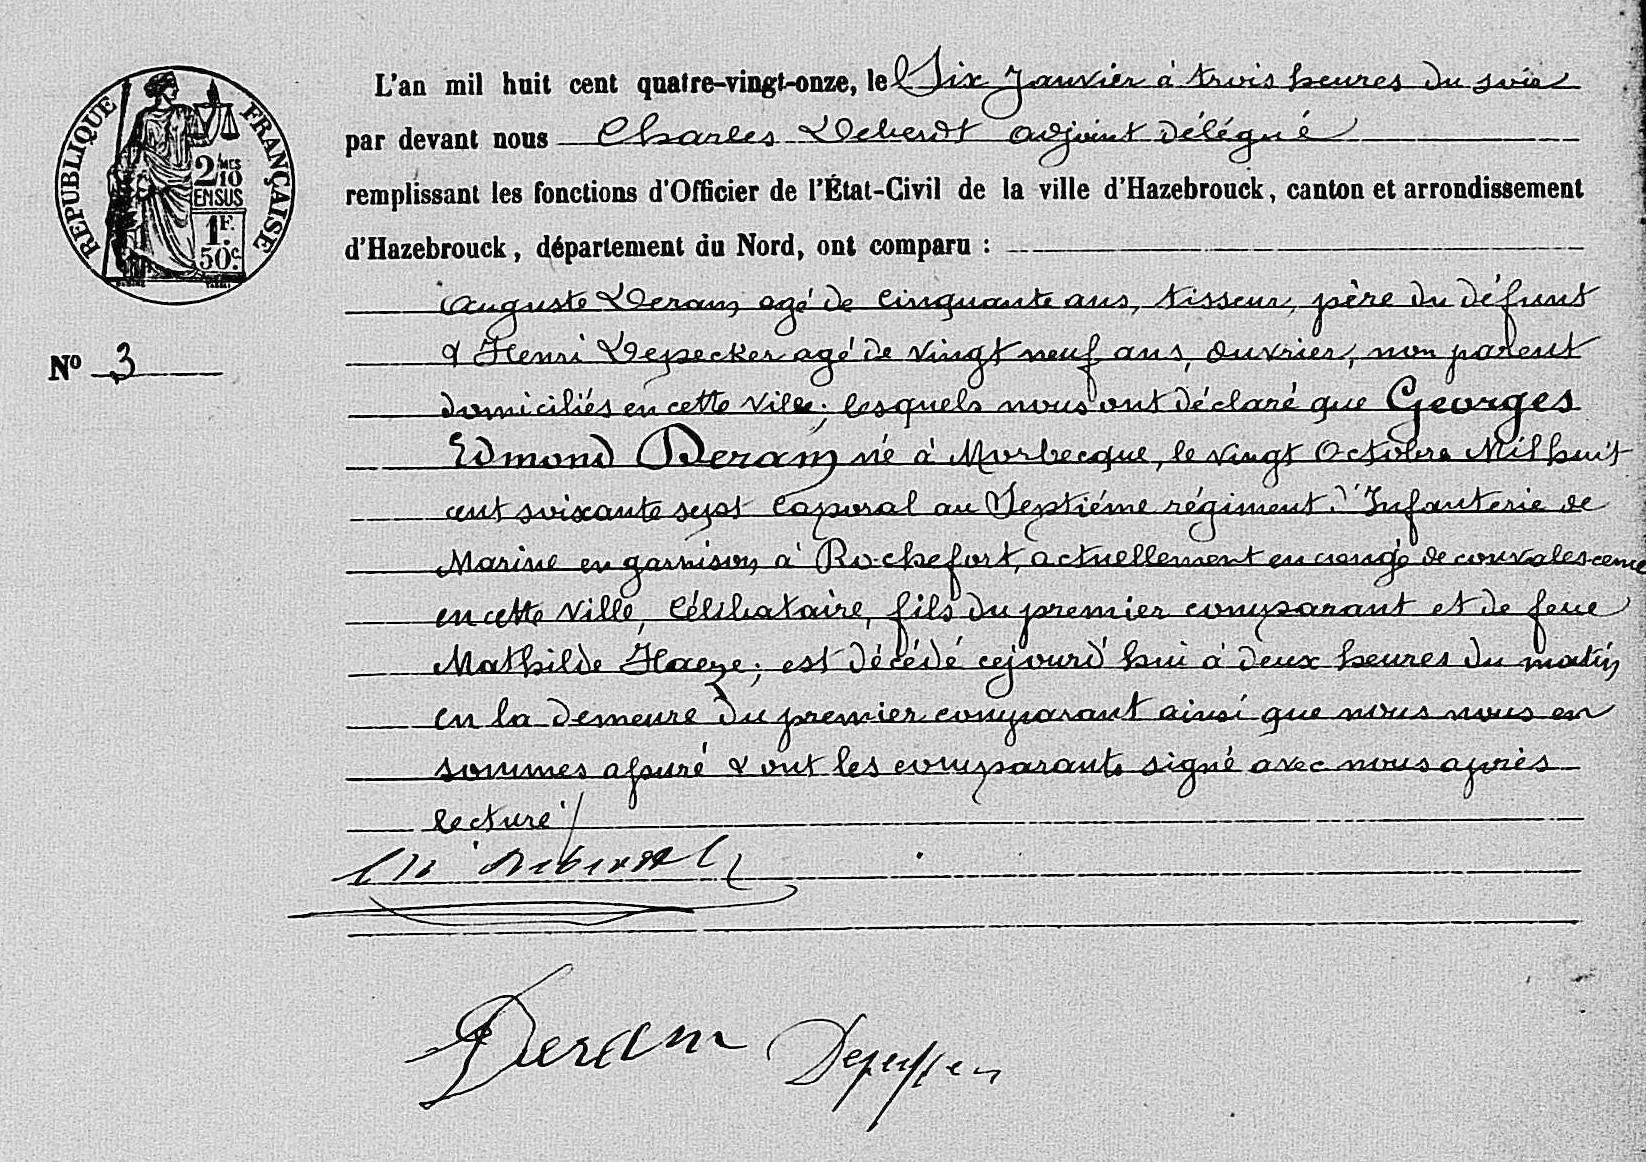 RÉPUBLIQUE FRANÇAISE
2/10 MES
EN SUS
1F.
50c.
L'an mil huit cent quatre-vingt-onze, le Six Janvier à trois heures du soir
par devant nous Charles adjoint délégué
remplissant les fonctions d'Officier de l'État-Civil de la ville d'Hazebrouck, canton et arrondissement
d'Hazebrouck, département du Nord, ont comparu :
Auguste Deram, agé de cinquante ans, tisseur, père du défunt
Nº 3
& Henri agé de vingt neuf ans, ouvrier, non parent
domiciliés en cette ville; lesquels nous ont déclaré que Georges
Edmond Deram né à Morbecque, le vingt Octobre Mil huit
cent soixante sept Caporal au Septième régiment d'Infanterie de
Marine en garnison à Rochefort, actuellement en congé de convalescence
en cette Ville, Célibataire, fils du premier comparant et de feue
Mathilde Haeze; est décédé cejourd'hui à deux heures du matin
en la demeure du premier comparant ainsi que nous nous en
sommes assuré & ont les comparants signé avec nous après
lecture
Deram